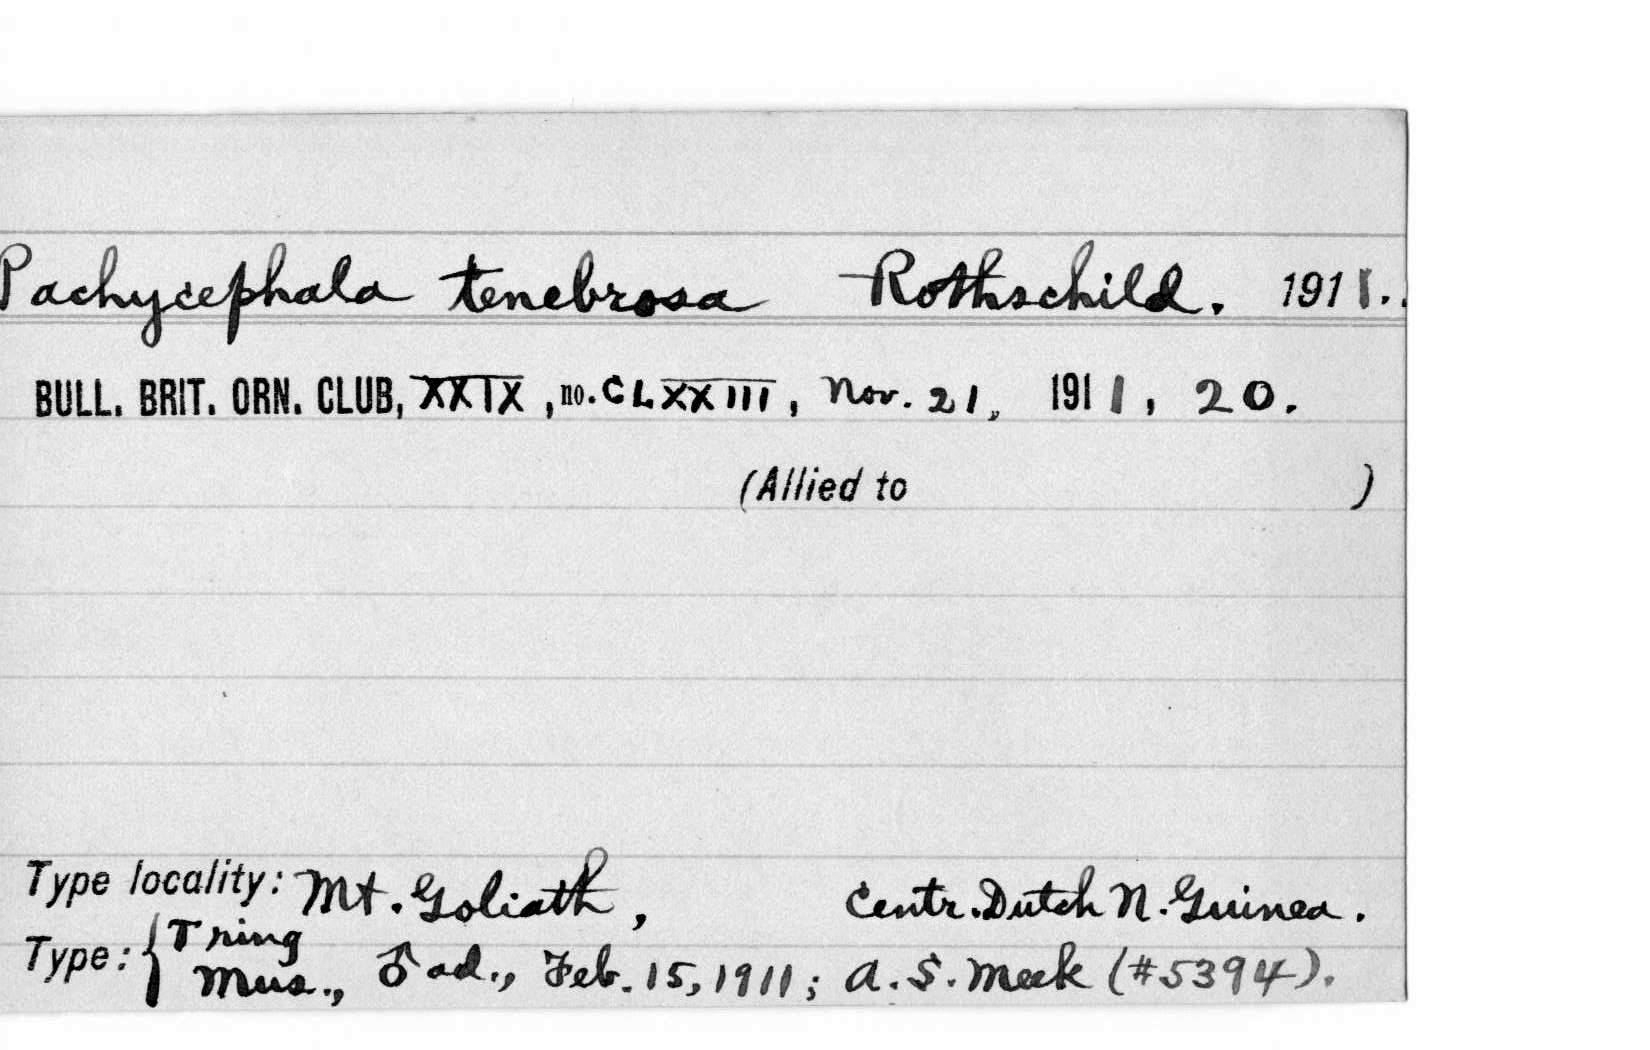 Pachycephala tenebrosa Rothschild. 1911..
BULL. BRIT. ORN. CLUB, XXIX, no. CLXXIII, Nov. 21, 1911, 20.
(Allied to )
Type locality: Mt. Goliath, Centr. Dutch N. Guinea.
Type: { Tring
Mus., ♂ ad., Feb. 15, 1911; A. S. Meek (#5394).